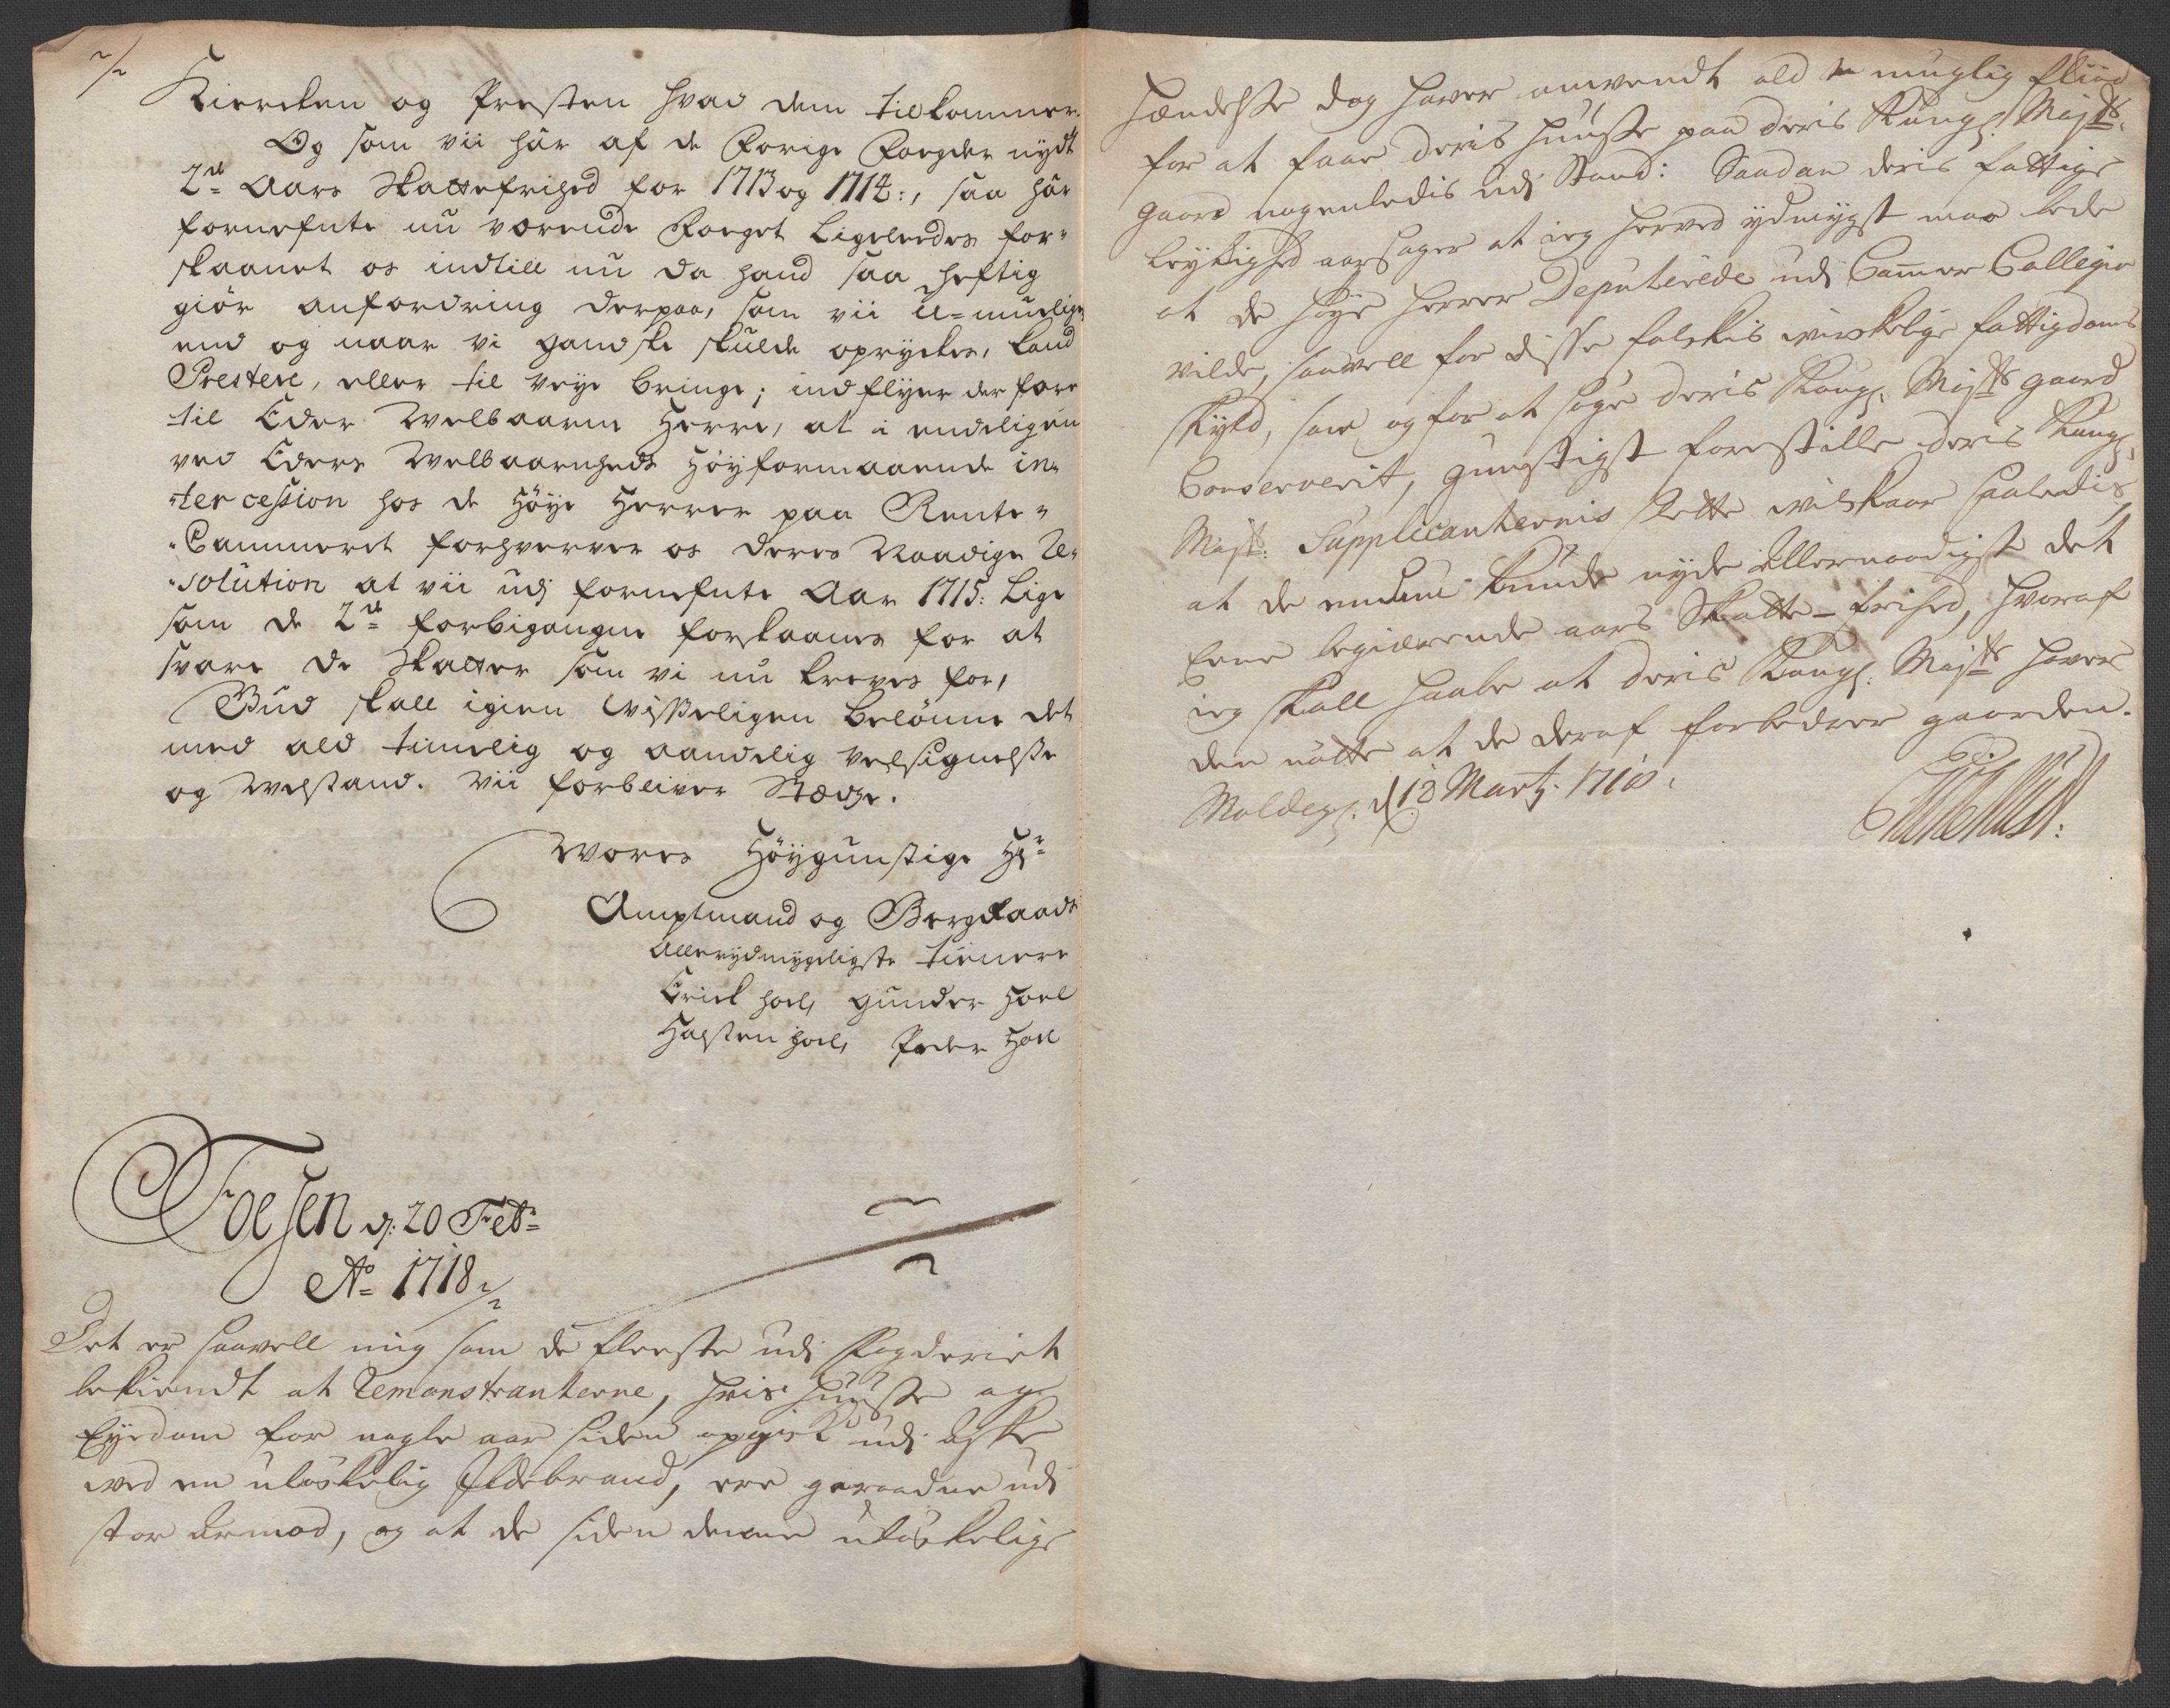 Kiercken og Presten hvad dem tilkommer.
Og som vii har af de Forige Fogder nydt
2de Aars Skattefrihed for 1713 og 1714:, saa har
fornefnte nu værende Foeget Ligeleedes for-
skaanet os indtill nu da hand saa heftig
giør anfordring derpaa, som vii U-muelige
end og naar vi gandske skulde opryckes, kand
Prestere, eller til veye bringe; indflyer derfore
til Eder Welbaarne Herre, at i endeligen
ved Eders Welbaarnheds Høyformaaende in-
-tercession hos de Høye Herrer paa Rente-
-Cammeret forhverver os deres Naadige Re-
-solution at vii udj fornefnte Aar 1715: Lige
som de 2de forbigangne forskaanes for at
svare de Skatter som vi nu kreves for,
Gud skall igien Wisseligen belønne det
med ald timelig og aandelig velsignelsse
og Welstand. Vii forbliver Stædse.
Wores Høygunstige Hr
Amptmand og BergRaads
Allerydmygeligste tienere
Erick Hoel, Gunder Hoel
Halsten Hoel, Peder Hoel
Foesen d: 20 Feb:
Ao 1718
Det er saavell mig som de fleeste udj Fogderiet
bekiendt at Remonstranterne, hvis huusse og
Eyedom for nogle aar siden opgick udj aske
ved en uløskelig Ildebrand, ere geraadne udj
stor armod, og at de siden denne uløskelige
hændelsse dog haver anvendt ald muglig fliid
for at faae deris huusse paa deris Kongl: Majts:
gaard nogenledis udj Stand: Saadan deris fattige
beskaffenhed aarsager at ieg herved ydmygst maa bede
at de høye herrer Deputerede udj Cammer Collegio
vilde, saavell for disse folckis wirkelige fattigdoms
skyld, som og for at søge deris Kongl. Majts gaard
Conserverit, gunstigst forestille deris Kongl.
Majt: Supplicanternis slette wilkaar saaledis
at de endnu kunde nyde allernaadigst det
Eene begiærende aars Skatte-frihed, hvoraf
ieg skall haabe at deris Kongl: Majts haver
den nøtte at de deraf forbedrer gaarden.
Moldegl. d 18 Martj: 1718.